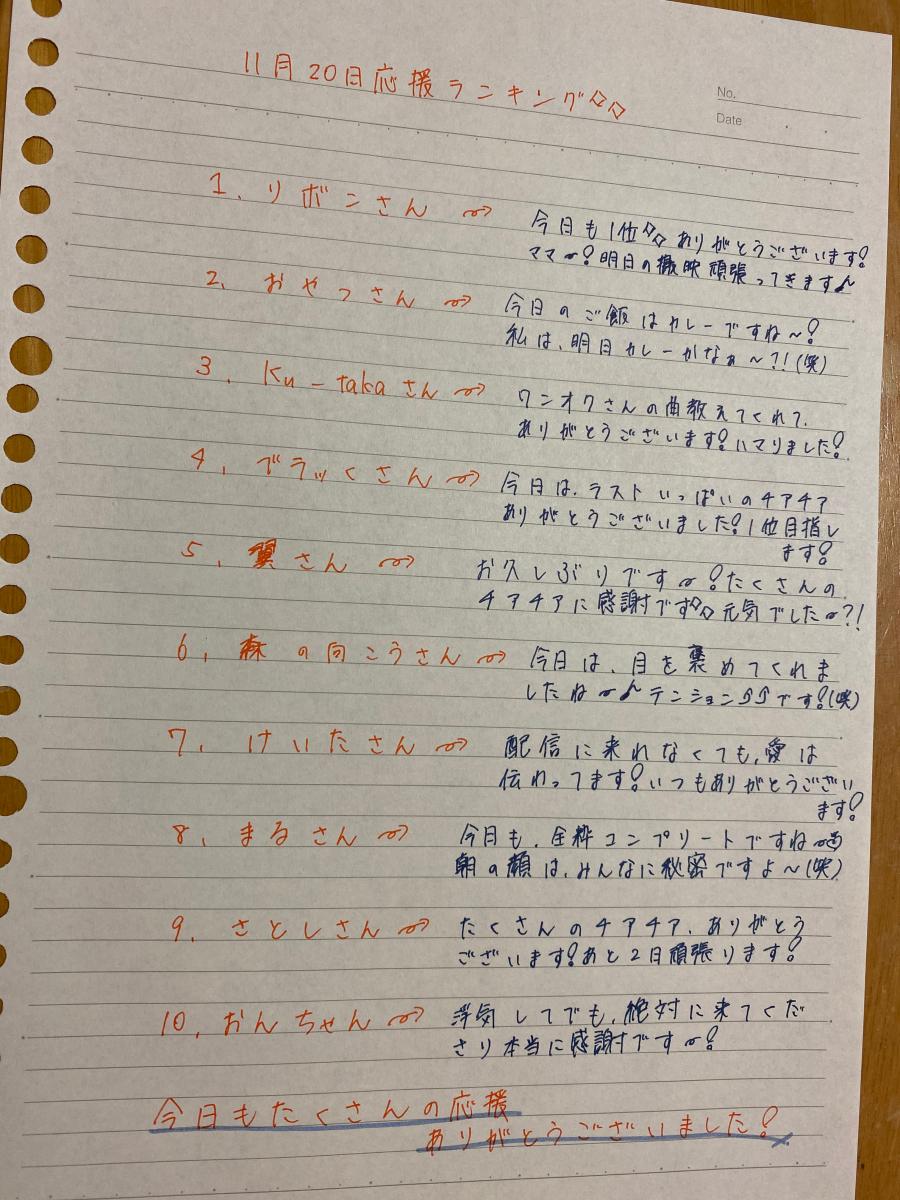 No.
Date
11月20日応援ランキング☆☆
1. リボンさん 〜>
今日も1位☆☆ありがとうございます!
ママ〜!明日の撮映頑張ってきます♪
2. おやつさん 〜>
今日のご飯はカレーですね〜!
私は、明日カレーかなぁ〜?!(笑)
3. Ku-takaさん 〜>
ワンオクさんの曲教えてくれて、
ありがとうございます!ハマりました!
4. ブラッくさん 〜>
今日は、ラストいっぱいのチアチア
ありがとうございました!1位目指し
ます!
5. 翼さん 〜>
お久しぶりです〜!たくさんの
チアチアに感謝です☆☆元気でした〜?!
6. 森の向こうさん 〜>
今日は、目を褒めてくれま
したね〜♪テンション⤴⤴です!(笑)
7. けいたさん 〜>
配信に来れなくても、愛は
伝わってます!いつもありがとうござい
ます!
8. まるさん 〜>
今日も、全粋コンプリートですね〜
朝の顔は、みんなに秘密ですよ〜(笑)
9. さとしさん 〜>
たくさんのチアチア、ありがとう
ございます!あと2日頑張ります!
10. おんちゃん 〜>
浮気してでも、絶対に来てくだ
さり本当に感謝です〜!
今日もたくさんの応援
ありがとうございました!